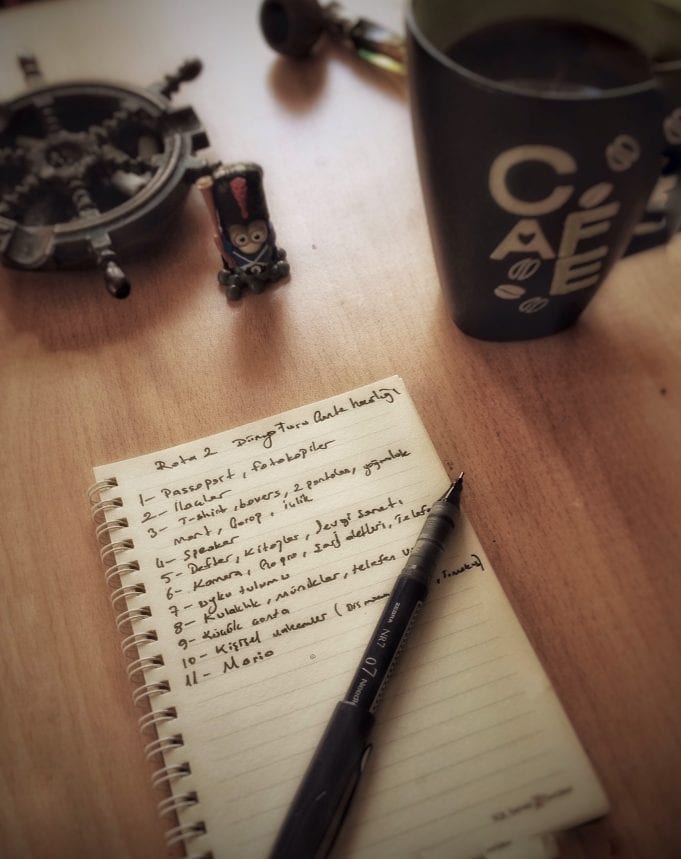 CAFE
Rota 2 Dünya Turu Çanta hazırlığı
1- Passaport, fotokopiler
2- İlaçlar
3- T-shirt, boxers, 2 pantolon, yağmurluk
mont, Çorap, içlik
4- Speaker
5- Defter, Kitaplar, Sevgi Sanatı
6- Kamera, Gopro, şarj aletleri, Telefo
7- uyku tulumu
8- Kulaklık, müzikler, telefes
9- Küçük çanta
10- Kişisel malzemeler (Diş macun
11- Mario
ZEBRA NR7 07 Needle